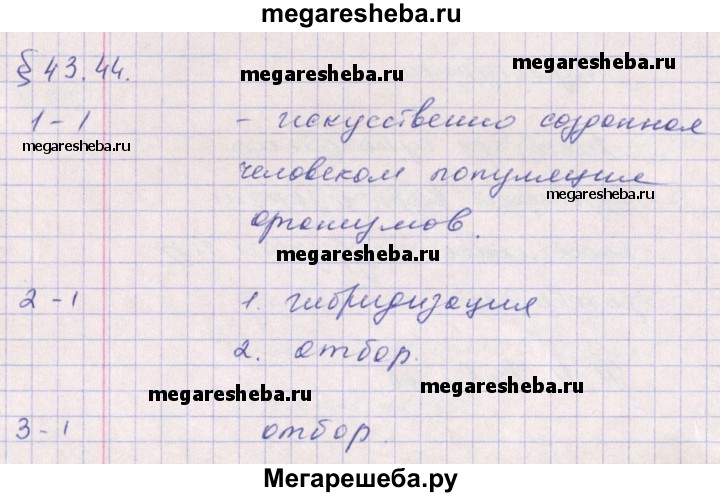 megaresheba.ru
§ 43.44.
megaresheba.ru
megaresheba.ru
1-1 - искусственно созданная
megaresheba.ru
человеком популяция
megaresheba.ru
организмов.
megaresheba.ru
2-1 1. гибридизация
2. отбор.
megaresheba.ru
megaresheba.ru
3-1 отбор.
Мегарешеба.ру